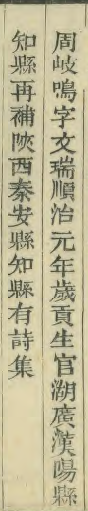 周岐鳴字文瑞順治元年歲貢生官湖廣漢陽縣
知縣再補陜西秦安縣知縣有詩集